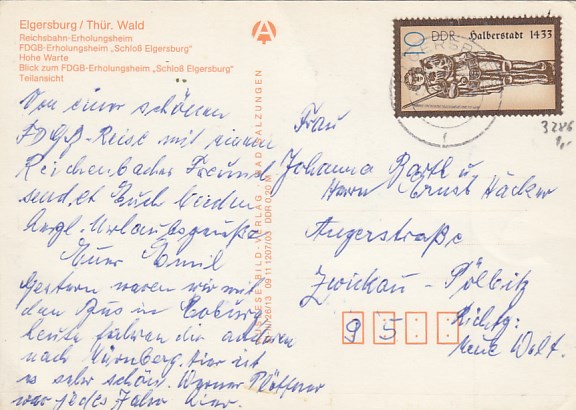 Elgersburg / Thür. Wald
Reichsbahn-Erholungsheim
FDGB-Erholungsheim „Schloß Elgersburg"
Hohe Warte
Blick zum FDGB-Erholungsheim „Schloß Elgersburg"
Teilansicht
Von einer schönen
FDGB-Reise mit einem
Reichenbacher Freund
sendet Euch beiden
herzl. Urlaubsgrüße
Euer Emil
Gestern waren wir mit
den Bus in Coburg
heute fahren die anderen
nach Nürnberg. Hier ist
es sehr schön. Werner
war jedes Jahr hier.
BILD-VERLAG · BAD SALZUNGEN
09 11 1207/03 DDR 0,20 M
10 DDR Halberstadt 1433
3286
1,-
Frau
Johanna Barth u
Herrn Ernst Häcker
Angerstraße
Zwickau - Pölbitz
95
Richtg:
Neue Welt.